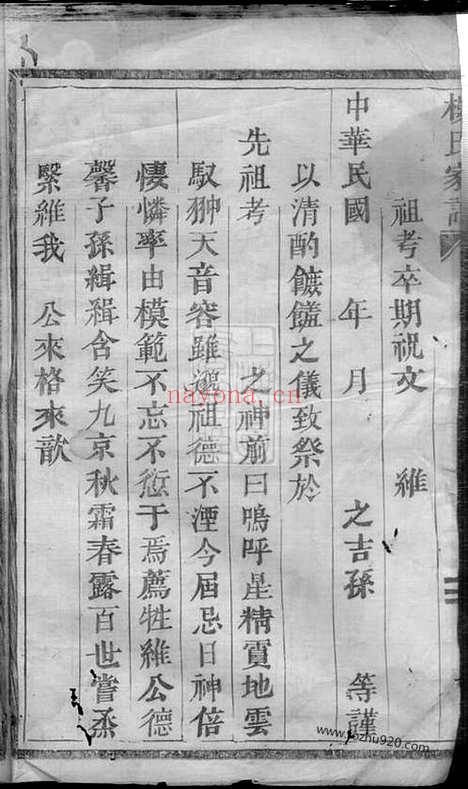 氏家
祖考卒期祝文 維
中華民國 年 月 之吉孫 等謹
以清酌饌饈之儀致祭於
先祖考 之神前曰嗚呼星精賁地雲
馭翀天音容雖邈祖德不湮今屆忌日神倍
悽憐率由模範不忘不愆于焉薦牲維公德
馨子孫緝緝含笑九京秋霜春露百世嘗烝
緊維我 公來格來歆
nayona.cn
www.jiazhu920.com